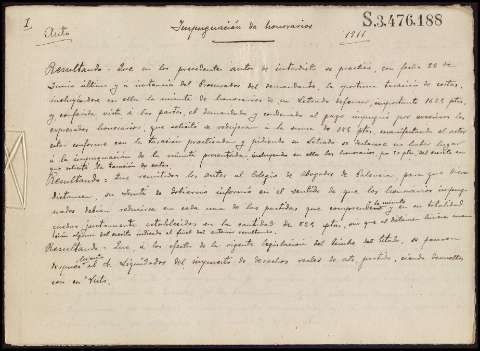 1
Auto
Impugnación de honorarios
S.3.476.188
1911
Resultando = Que en los precedentes autos de interdicto se practicó, con fecha 22 de
Junio último y a instancia del Procurador del demandante, la oportuna tasación de costas,
incluyéndose en ella la minuta de honorarios de su Letrado defensor, importante 1622 ptas,
y conferida vista a las partes, el demandado y condenado al pago impugnó por excesivos los
expresados honorarios, que solicitó se redujeran a la suma de ptas, manifestando el actor
estar conforme con la tasación practicada y pidiendo su Letrado se declarase no haber lugar
a la impugnación de la minuta presentada, incluyendo en ella los honorarios por ptas del escrito en
que solicitó la tasación de costas.
Resultando = Que remitidos los autos al Colegio de Abogados de para que
dictamen, su Junta de Gobierno informó en el sentido de que los honorarios impug-
nados debían reducirse en cada una de las partidas que comprende la minuta y en su totalidad
quedar justamente establecidos en la cantidad de ptas, sin que el dictamen hiciese men-
ción alguna del escrito indicado al final del anterior resultando.
Resultando = Que, a los efectos de la vigente legislación del timbre del Estado, se pasaron
después los autos al Sr. Liquidador del impuesto de derechos reales de este partido, siendo devueltos
con su Visto.